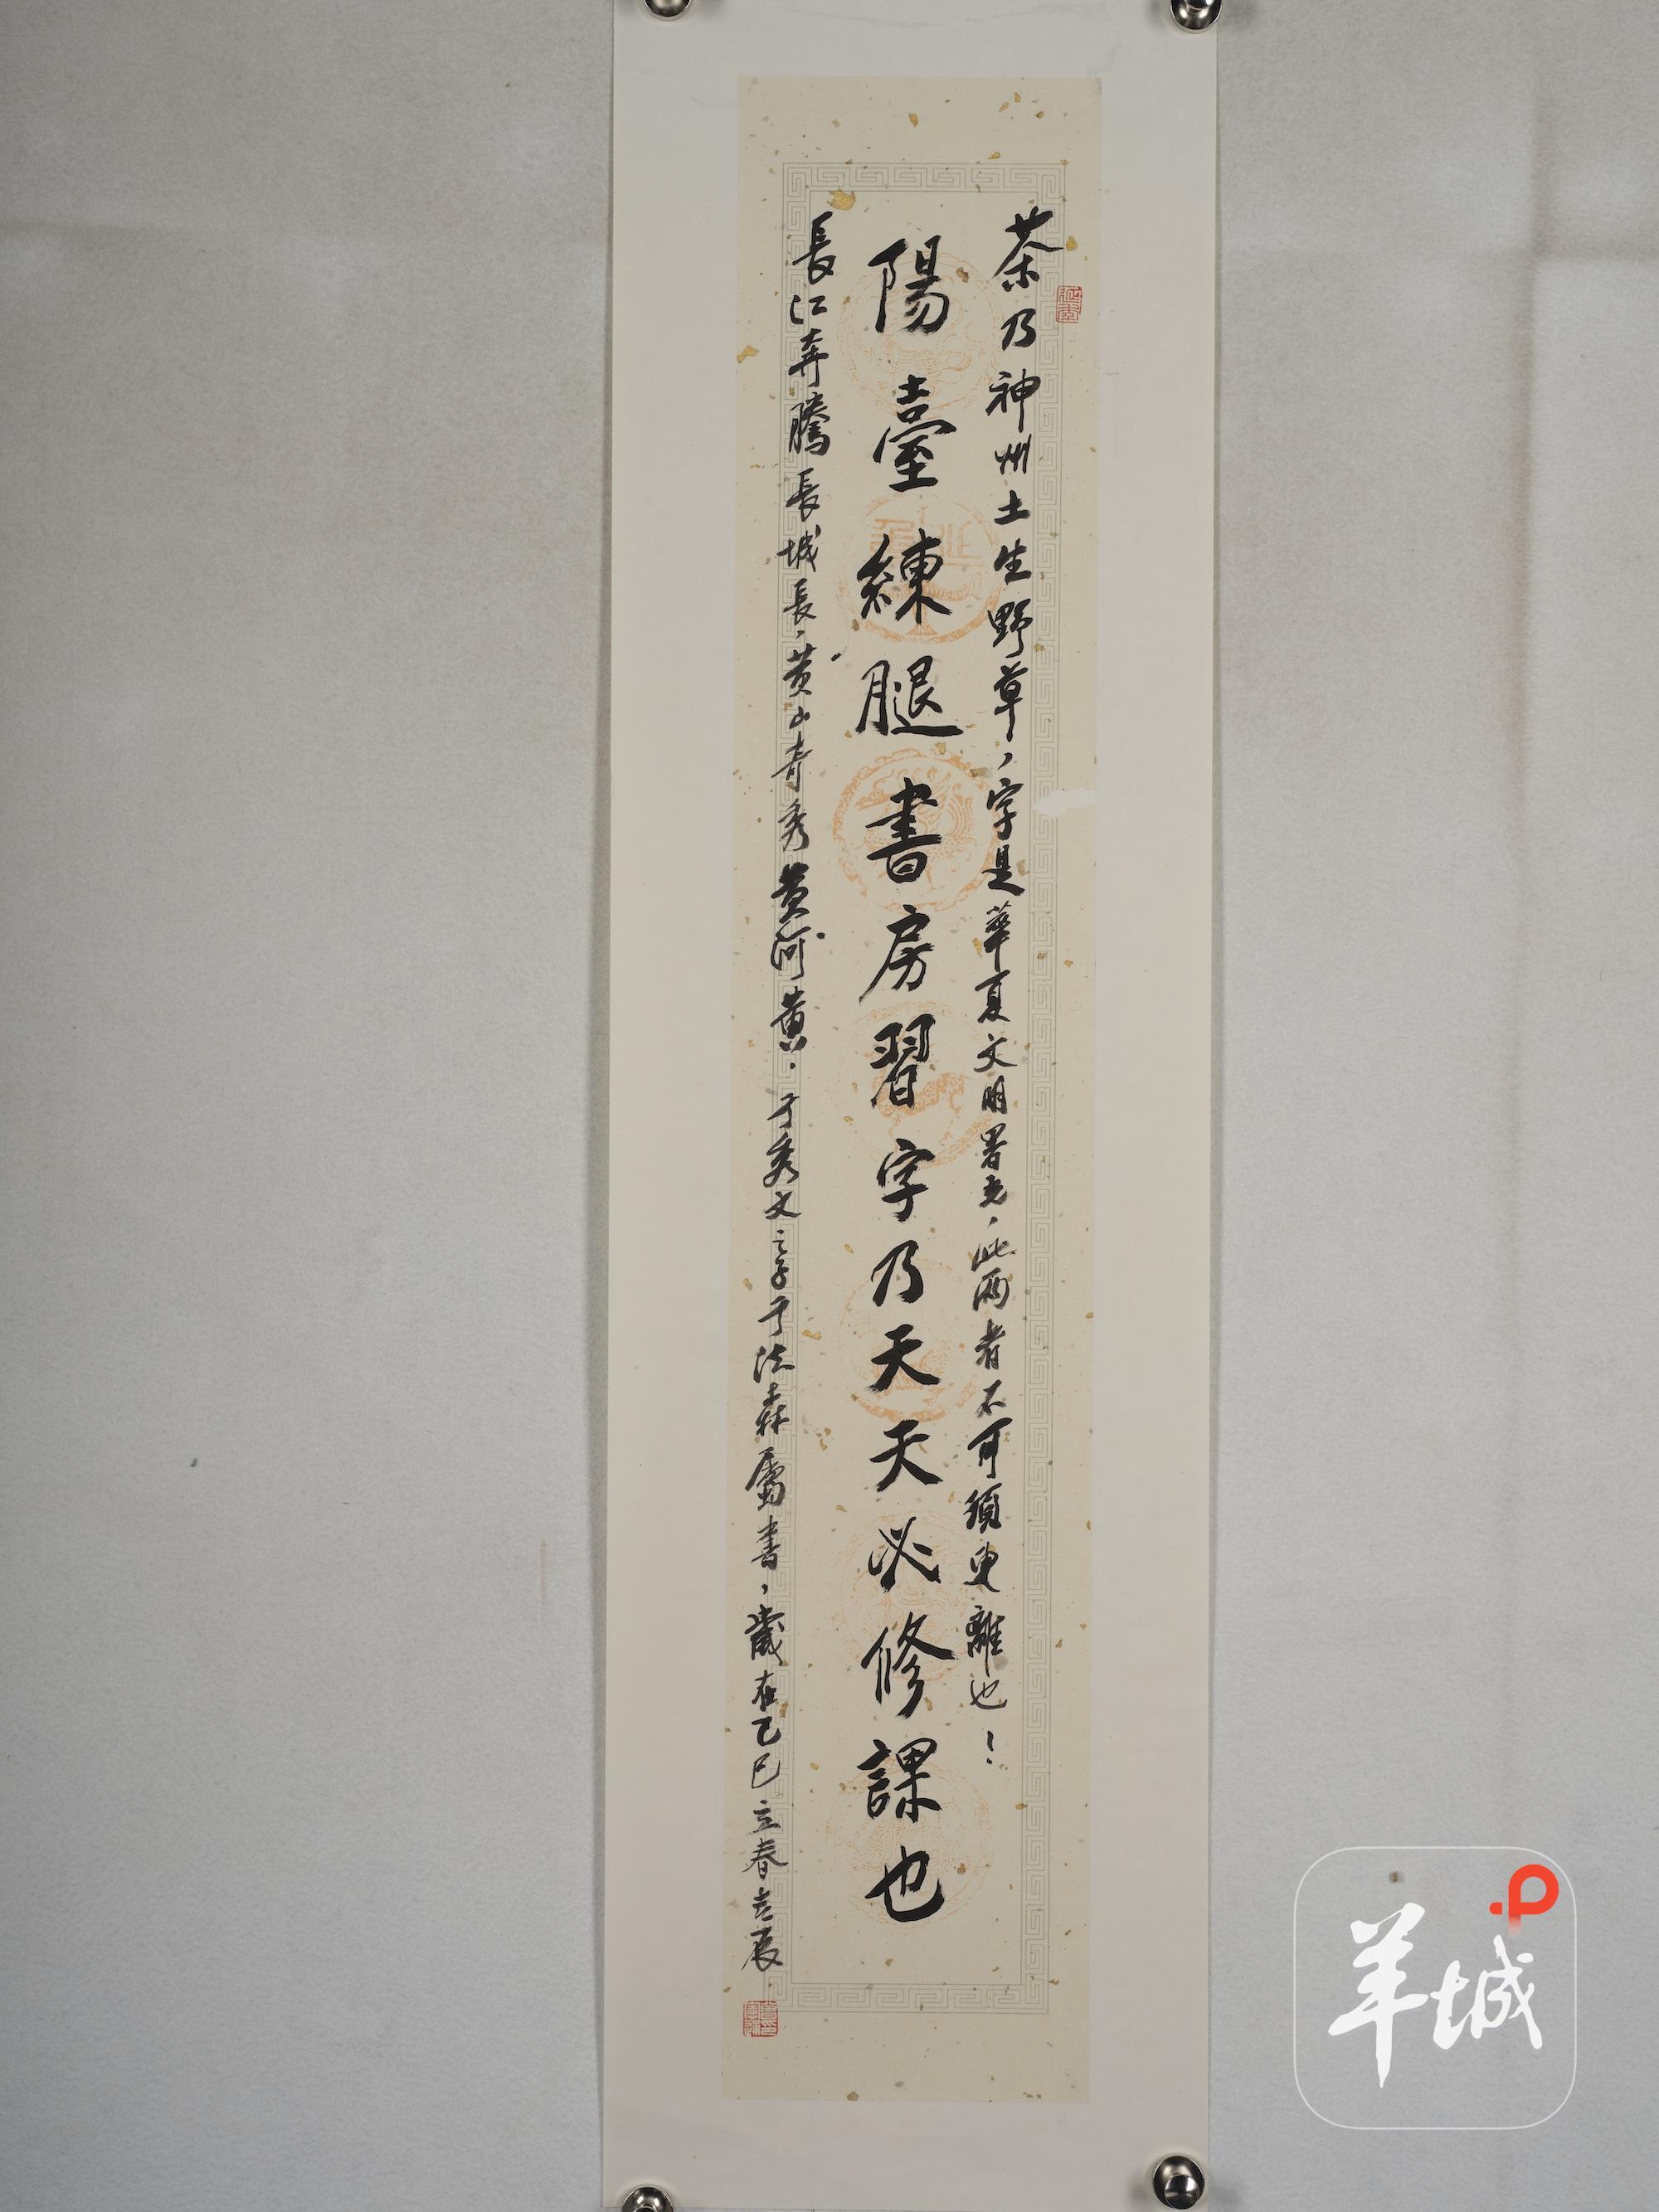 茶乃神州土生野草，字是華夏文明署光，此兩者不可須臾離也！
陽臺練腿書房習字乃天天必修課也
長江奔騰長城長，黄山青秀黄河黄．于秀文 于法森屬書，歲在乙巳立春
羊城